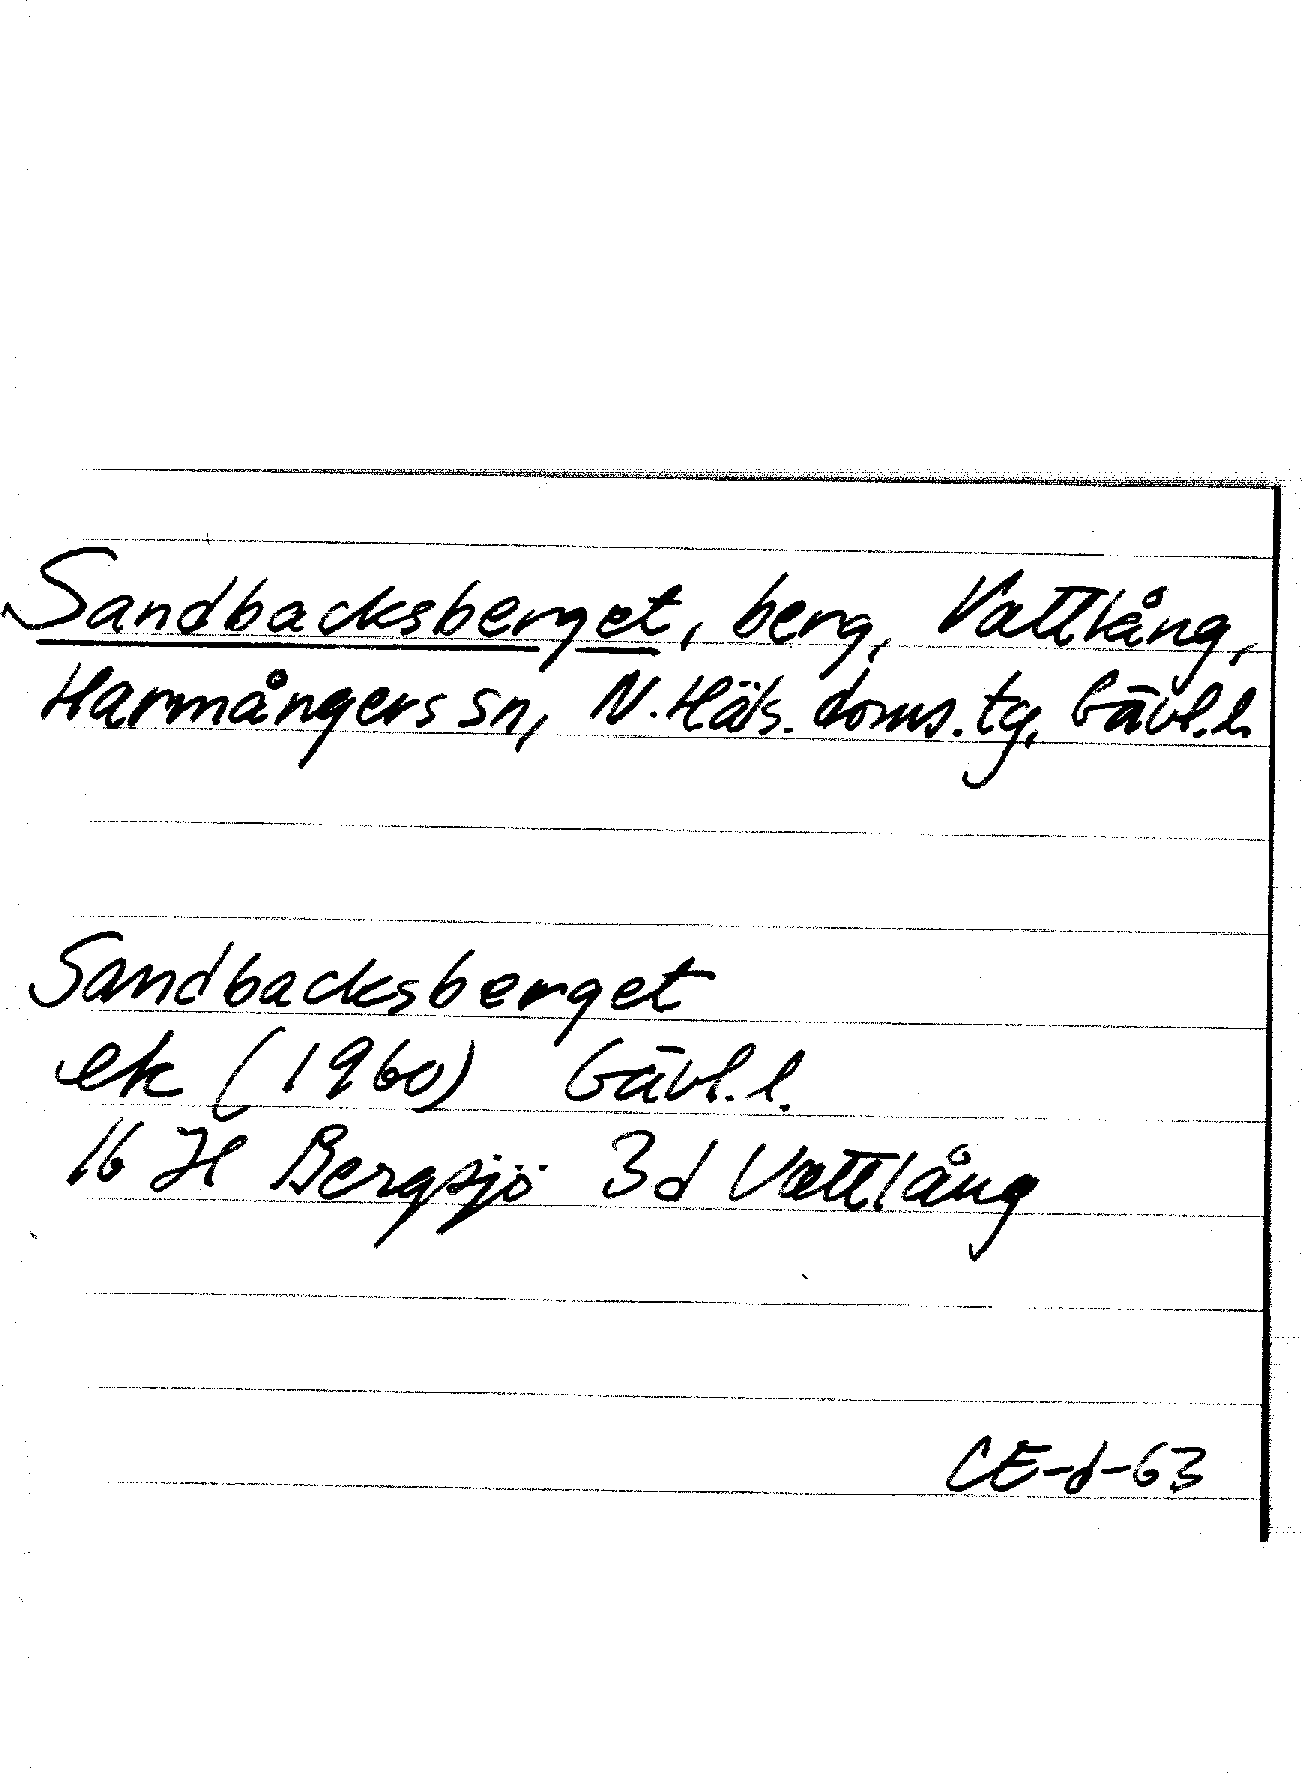 Sandbacksberget, berg, Vattlång,
Harmångers sn, N. Häls. doms. tg, Gävl. l.
Sandbacksberget
ek (1960) Gävl. l.
16 H Bergsjö 3d Vattlång
CE-d-63